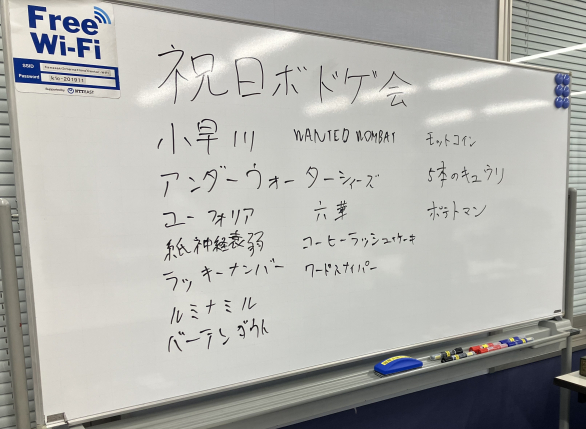 Free
Wi-Fi
SSID
Password
NTT EAST
祝日ボドゲ会
小早川
アンダーウォーターシティーズ
ユーフォリア
紙神経衰弱
ラッキーナンバー
ルミナミル
バーテンダウト
WANTED WOMBAT
六華
コーヒーラッシュケーキ
ワードスナイパー
モットコイン
5本のキュウリ
ポテトマン